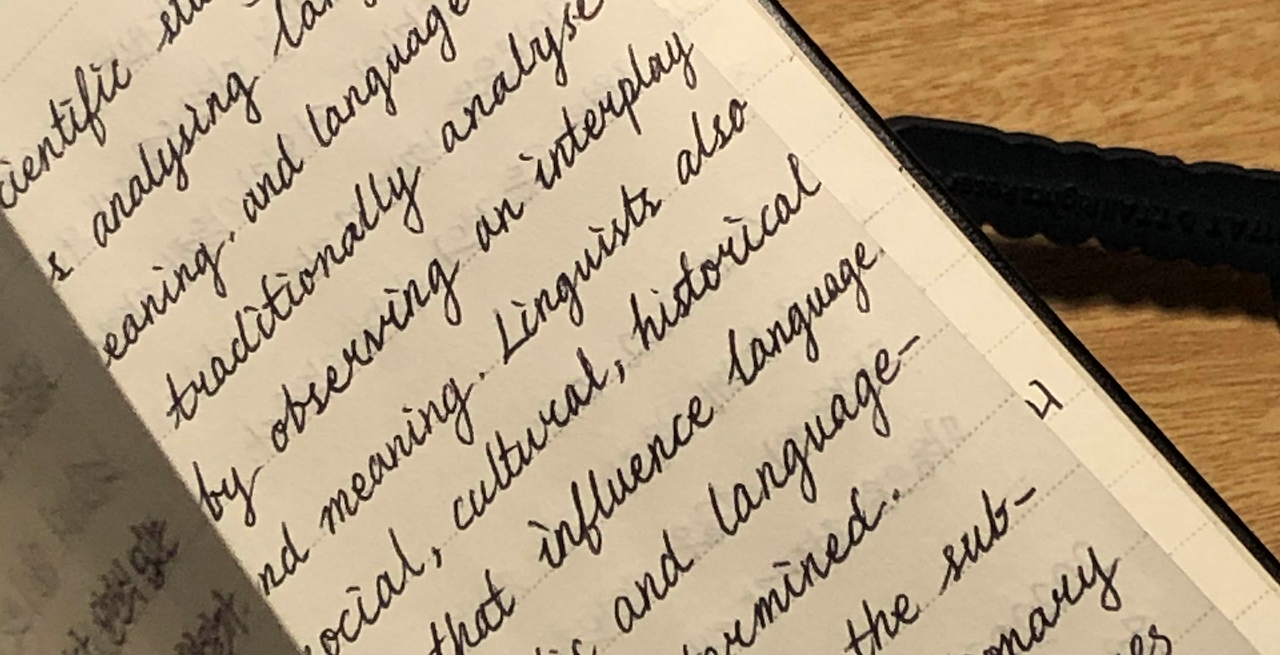 scientific
s analysing
eaning, and language
traditionally analyse
by observing an interplay
nd meaning. Linguists also
ocial, cultural, historical
that influence language
and language-
ermined.
the sub-
onary
es
4